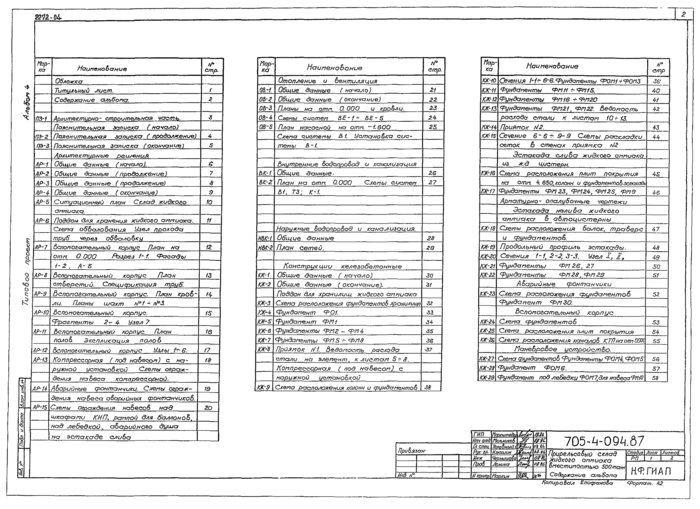 2272-04
2
Альбом 4
Типовой проект
Мар-ка
Наименование
№ стр.
Обложка
Титульный лист 1
Содержание альбома. 2
ПЗ-1 Архитектурно-строительная часть. 3
Пояснительная записка (начало)
ПЗ-2 Пояснительная записка (продолжение) 4
ПЗ-3 Пояснительная записка (окончание) 5
Архитектурные решения
АР-1 Общие данные (начало). 6
АР-2 Общие данные (продолжение) 7
АР-3 Общие данные (продолжение) 8
АР-4 Общие данные (окончание) 9
АР-5 Ситуационный план Склад жидкого 10
аммиака.
АР-6 Поддон для хранения жидкого аммиака. 11
Схема обвалования Узел прохода
труб через обваловку
АР-7 Вспомогательный корпус План на 12
отм. 0.000 Разрез 1-1. Фасады
1-2, А-Б
АР-8 Вспомогательный корпус План 13
отверстий. Спецификация труб.
АР-9 Вспомогательный корпус. План кров- 14
ли. Планы шахт №1-№3
АР-10 Вспомогательный корпус. 15
Фрагменты 2-4 Узел 7
АР-11 Вспомогательный корпус. План 16
полов Экспликация полов
АР-12 Вспомогательный корпус Узлы 1-6. 17
АР-13 Компрессорная (под навесом) с на- 18
ружной установкой Схемы ограж-
дения навеса компрессорной.
АР-14 Аварийные фонтанчики. Схемы ограж- 19
дения навеса аварийных фонтанчиков.
АР-15 Схемы ограждения навесов над 20
шкафами КИП, рампой для баллонов,
над лебедкой, аварийного душа
на эстакаде слива
Мар-ка
Наименование
№ стр.
Отопление и вентиляция
ОВ-1 Общие данные (начало) 21
ОВ-2 Общие данные (окончание) 22
ОВ-3 Планы на отм. 0.000 и кровли. 23
ОВ-4 Схемы систем ВЕ-1 - ВЕ-5 24
ОВ-5 План насосной на отм -1.800 25
Схема системы В1. Установка сис-
темы В-1.
Внутренние водопровод и канализация
ВК-1 Общие данные. 26
ВК-2 План на отм 0.000 Схемы систем 27
В1, Т3, К-1.
Наружные водопровод и канализация.
НВК-1 Общие данные 28
НВК-2 План сетей. 29
Конструкции железобетонные
КЖ-1 Общие данные (начало) 30
КЖ-2 Общие данные (окончание). 31
Поддон для хранилищ жидкого аммиака
КЖ-3 Схема расположения фундаментов хранилищ 32
КЖ-4 Фундамент ФО1. 33
КЖ-5 Фундаменты ФМ1 34
КЖ-6 Фундаменты ФМ2 - ФМ4 35
КЖ-7 Фундаменты ФМ5 - ФМ8 36
КЖ-8 Приямок №1. Ведомость расхода 37
стали на элемент, к листам 5÷8.
Компрессорная (под навесом) с
наружной установкой
КЖ-9 Схема расположения колонн и фундаментов 38
КЖ-10 Сечения 1-1÷6-6. Фундаменты ФОМ1÷ФОМ3 39
КЖ-11 Фундаменты ФМ11 - ФМ15. 40
КЖ-12 Фундаменты ФМ16 - ФМ20 41
КЖ-13 Фундаменты ФМ21, ФМ22. Ведомость 42
расхода стали к листам 10÷13.
КЖ-14 Приямок №2. 43
КЖ-15 Сечение 6-6÷9-9 Схемы раскладки 44
сеток в стенах приямка №2
Эстакада слива жидкого аммиака
из ж.д цистерн.
КЖ-16 Схема расположения плит покрытия 45
на отм. 4.650, колонн и фундаментов эстакады
КЖ-17 Фундаменты ФМ23, ФМ24, ФМ25, ФМ9 46
Арматурно-опалубочные чертежи
Эстакада налива жидкого
аммиака в автоцистерны
КЖ-18 Схемы расположения балок, траверс 47
и фундаментов.
КЖ-19 Продольный профиль эстакады. 48
КЖ-20 Сечения 1-1, 2-2, 3-3. Узел I, II. 49
КЖ-21 Фундаменты ФМ26, 27 50
КЖ-22 Фундаменты ФМ28 51
Аварийные фонтанчики
КЖ-23 Схема расположения фундаментов 52
Фундамент ФМ30.
Вспомогательный корпус
КЖ-24 Схема фундаментов 53
КЖ-25 Схема расположения плит покрытия 54
КЖ-26 Схема расположения каналов КТП на отм 0.000 55
Маневровое устройство.
КЖ-27 Схема расположения фундаментов ФОМ4, ФОМ5 56
КЖ-28 Фундамент ФОМ6. 57
КЖ-29 Фундамент под лебедку ФОМ7, для навеса ФМ10 58
Привязан
Инв №
ГИП
705-4-094.87
Прирельсовый склад
жидкого аммиака
вместимостью 500 тонн
Содержание альбома
Стадия Лист Листов
РП 1 2
Н.Ф. ГИАП
Копировал Епифанова Формат А2